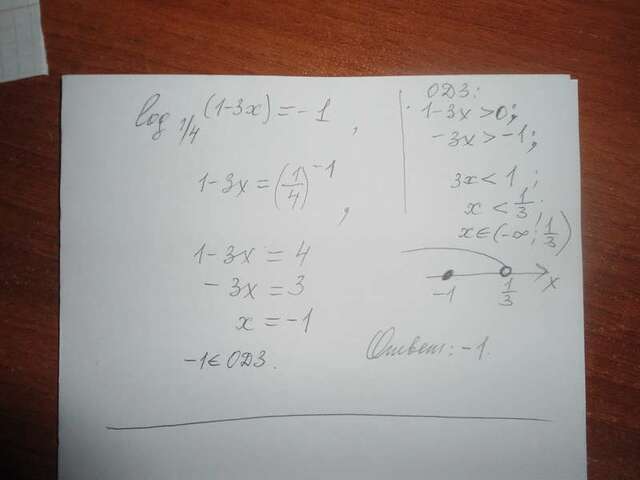 log 1/4 (1-3x) = -1 ,
1-3x = (1/4)^-1 ,
1-3x = 4
-3x = 3
x = -1
-1 ∈ ОДЗ.
ОДЗ:
1-3x > 0;
-3x > -1;
3x < 1 ;
x < 1/3 ;
x ∈ (-∞; 1/3)
-1 1/3 x
Ответ: -1.